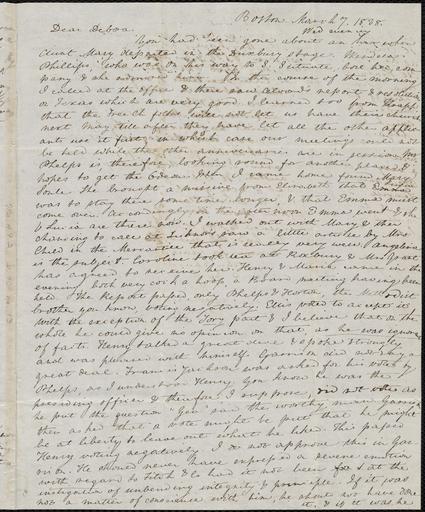 Boston March 7, 1838.
Wed evening
Dear Debora,
You had been gone about an hour when
Aunt Mary departed in the Duxbury stage. Wendell
Phillips, who was on his way to
pany & she admired him. In the course of the morning
I called at the office & there saw Alvord's report &
on Texas which are very good. I learned too from Knapp
that the Free Ch folks will not let us have their church
next May till after they have let all the other applic
ants use it first, in which case our meetings could not
be held while the other anniversaries are in session. Mr
Phelps is therefore looking round for another place &
hopes to get the Odeon. When I came home found Mary
Soule. She brought a missive from Elizabeth that
was to stay there some time longer, & that Emma must
come over. Accordingly in the afternoon Emma went & she
& Lucia are there now. I walked out with Mary & then
chancing to call at saw a little article by Mrs
Child in the Mercantile that is very very well. Angelina
is the subject. Caroline took tea at Roxbury & Mrs
has agreed to receive her. Henry & Maria came in the
evening, both very much a hoop, a Board meeting having been
held. The Report passed, only Phelps & the Methodist
brother you know, voting negatively. Ellis voted to accept it
with the exception of the part & I believe that on the
whole he could give no opinion on that, as he was ignorant
of facts. Henry talked a great deal & spoke strongly
and was pleased with himself. Garrison did not say a
great deal. Francis Jackson was asked for his vote by
Phelps, as I understood Henry. You know he was the
presiding officer & therefore, I suppose, did not vote as
he put the question. "Yea" said the worthy man. Garrison
then asked that a vote might be put that he might
be at liberty to leave out what he liked. This passed
Henry voting negatively. I do not approve this in Gar
rison. He should never have expressed a severe emotion
with regard to Fitch & Co had it not been for & at the
instigation of unbending integrity & principle. If it was
not a matter of conscience with him, he should not have done
it, & if it was, he